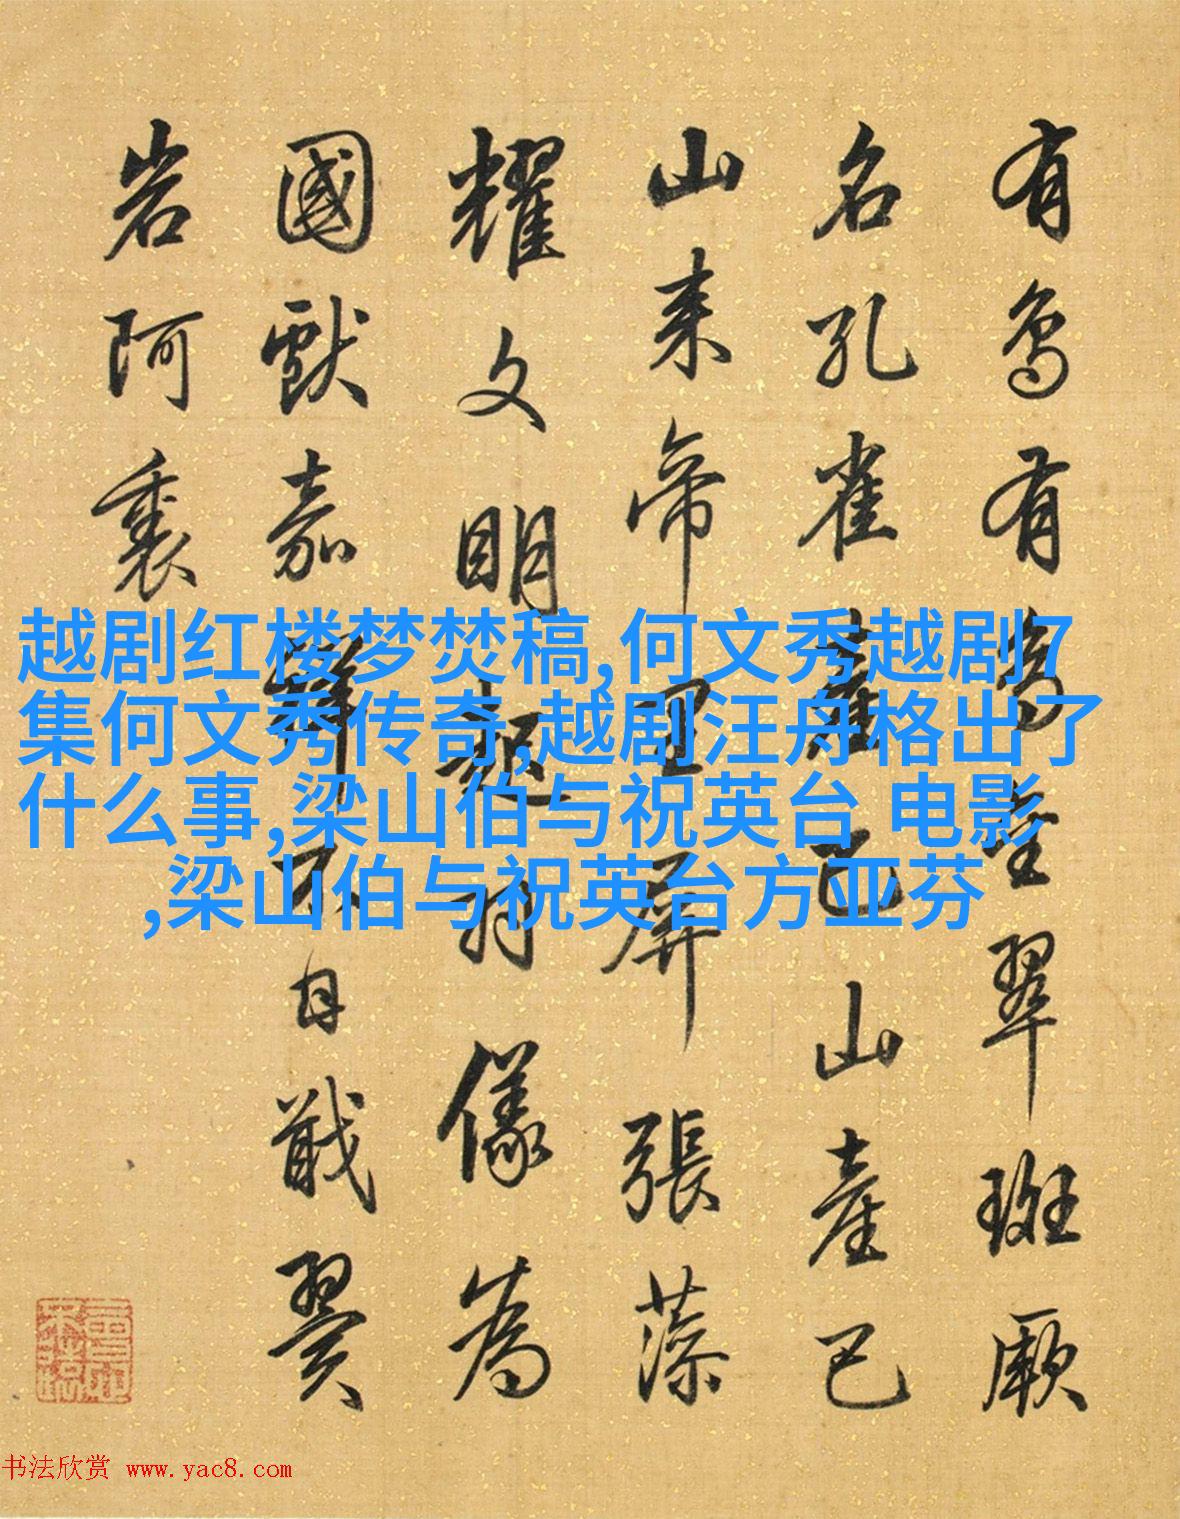 有鳥有鳥金翠斑厥
名孔雀產巴山產巴
山來帝里屏張藻
耀文明起羽儀為
國獻嘉不日戢翼
岩阿裏
越剧红楼梦焚稿,何文秀越剧7
集何文秀传奇,越剧汪舟格出了
什么事,梁山伯与祝英台 电影
,梁山伯与祝英台方亚芬
书法欣赏 www.yac8.com